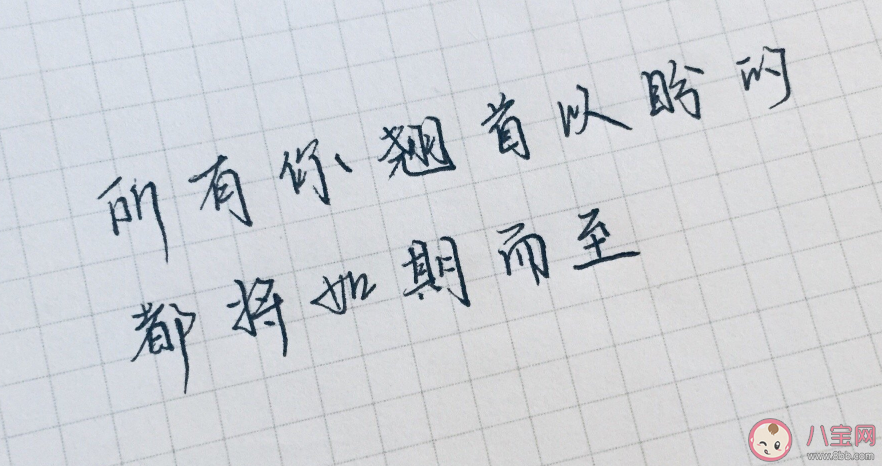 所有你翘首以盼的
都将如期而至
八宝网
www.8bb.com